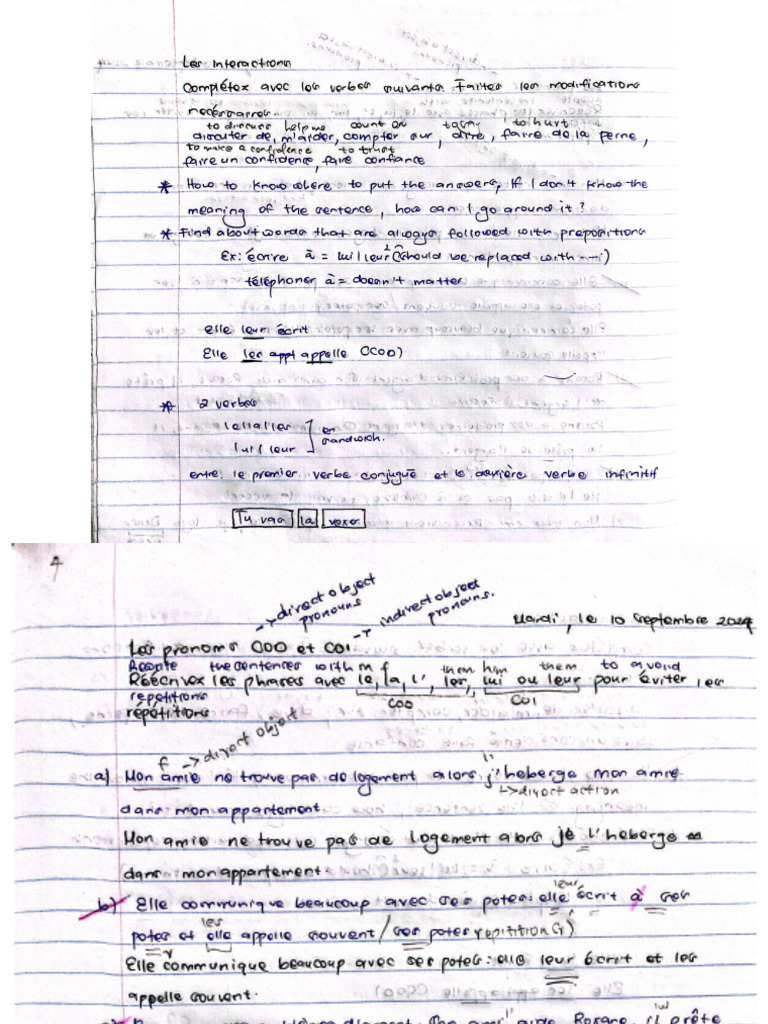 Les Interactions
Complétez avec les verbes suivants. Faites les modifications
nécessaires
to discuss help me count on to say to hurt
discuter de, m'aider, compter sur, dire, faire de la peine,
to make a confidence to trust
faire un confidence, faire confiance
* How to know where to put the answers, If I don't know the
meaning of the sentence, how can I go around it?
* Find about words that are always followed with prepositions
Ex: écrire à = lui/leur (should be replaced with ---)
téléphoner à = doesn't matter
elle leur écrit
Elle les appl appelle (COD)
* 2 verbes
le/la/les
lui/leur
en
sandwich.
entre le premier verbe conjugué et le deuxième verbe infinitif
Tu vas la voxer
4
→ direct object
pronouns
→ indirect object
pronouns.
Mardi, le 10 septembre 2024
Les pronoms COD et COI
the sentences with m f them him them to avoid
Réécrivez les phrases avec le, la, l', les, lui ou leur pour éviter les
repetitions
COD COI
répétitions
f → direct object
l'
a) Mon amie ne trouve pas de logement alors j'heberge mon amie
→ direct action
dans mon appartement.
Mon amie ne trouve pas de logement alors je l'heberge
dans mon appartement.
leur
b) Elle communique beaucoup avec ses potes: elle écrit à ses
les
potes et elle appelle souvent/ses potes
Elle communique beaucoup avec ses potes: elle leur écrit et les
appelle souvent.